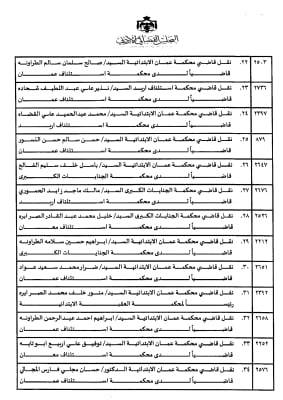 المجلس القضائي الأردني
٢٥٠٣ ٢٢. نقل قاضي محكمة عمان الابتدائية السيد/ صالح سلمان سالم الطراونه
قاضياً لدى محكمة استئناف عمان
٢٧٣٦ ٢٣. نقل قاضي محكمة استئناف اربد السيد/ نذير علي عبد اللطيف شحاده
قاضياً لدى محكمة استئناف عمان
٢٣٩٧ ٢٤. نقل قاضي محكمة عمان الابتدائية السيد/ محمد عبدالحميد علي القضاه
قاضياً لدى محكمة استئناف اربد
٨٧٩ ٢٥. نقل قاضي محكمة عمان الابتدائية السيد/ حسن سالم حسن النسور
قاضياً لدى محكمة استئناف عمان
٢٦٤٧ ٢٦. نقل قاضي محكمة عمان الابتدائية السيد/ باسل خلف سليم الفالح
قاضياً لدى محكمة الجنايات الكبرى
٢٦٧٦ ٢٧. نقل قاضي محكمة الجنايات الكبرى السيد/ مالك ماجد زايد الحموري
قاضياً لدى محكمة استئناف اربد
٢٥٢٦ ٢٨. نقل قاضي محكمة الجنايات الكبرى السيد/ خليل محمد عبد القادر الصرايره
قاضياً لدى محكمة استئناف معان
٢٢١٢ ٢٩. نقل قاضي محكمة عمان الابتدائية السيد/ ابراهيم حسين سلامه الطراونه
قاضياً لدى محكمة الجنايات الكبرى
٢٦٥١ ٣٠. نقل قاضي محكمة عمان الابتدائية السيد/ ضرار محمد سعيد عواد
قاضياً لدى محكمة استئناف عمان
٢٣٩٢ ٣١. نقل قاضي محكمة عمان الابتدائية السيد/ منور خلف محمد الصرايره
رئيساً لمحكمة العقبة الابتدائية
٢٦٥٨ ٣٢. نقل قاضي محكمة عمان الابتدائية السيد/ ابراهيم احمد عبدالرحمن الطراونه
قاضياً لدى محكمة استئناف عمان
٢٢٥٢ ٣٣. نقل قاضي محكمة عمان الابتدائية السيد/ توفيق علي اربيع ابو تايه
قاضياً لدى محكمة استئناف معان
٢٥٧٦ ٣٤. نقل قاضي محكمة عمان الابتدائية الدكتور/ حسان مجلي فارس المجالي
قاضياً لدى محكمة استئناف عمان